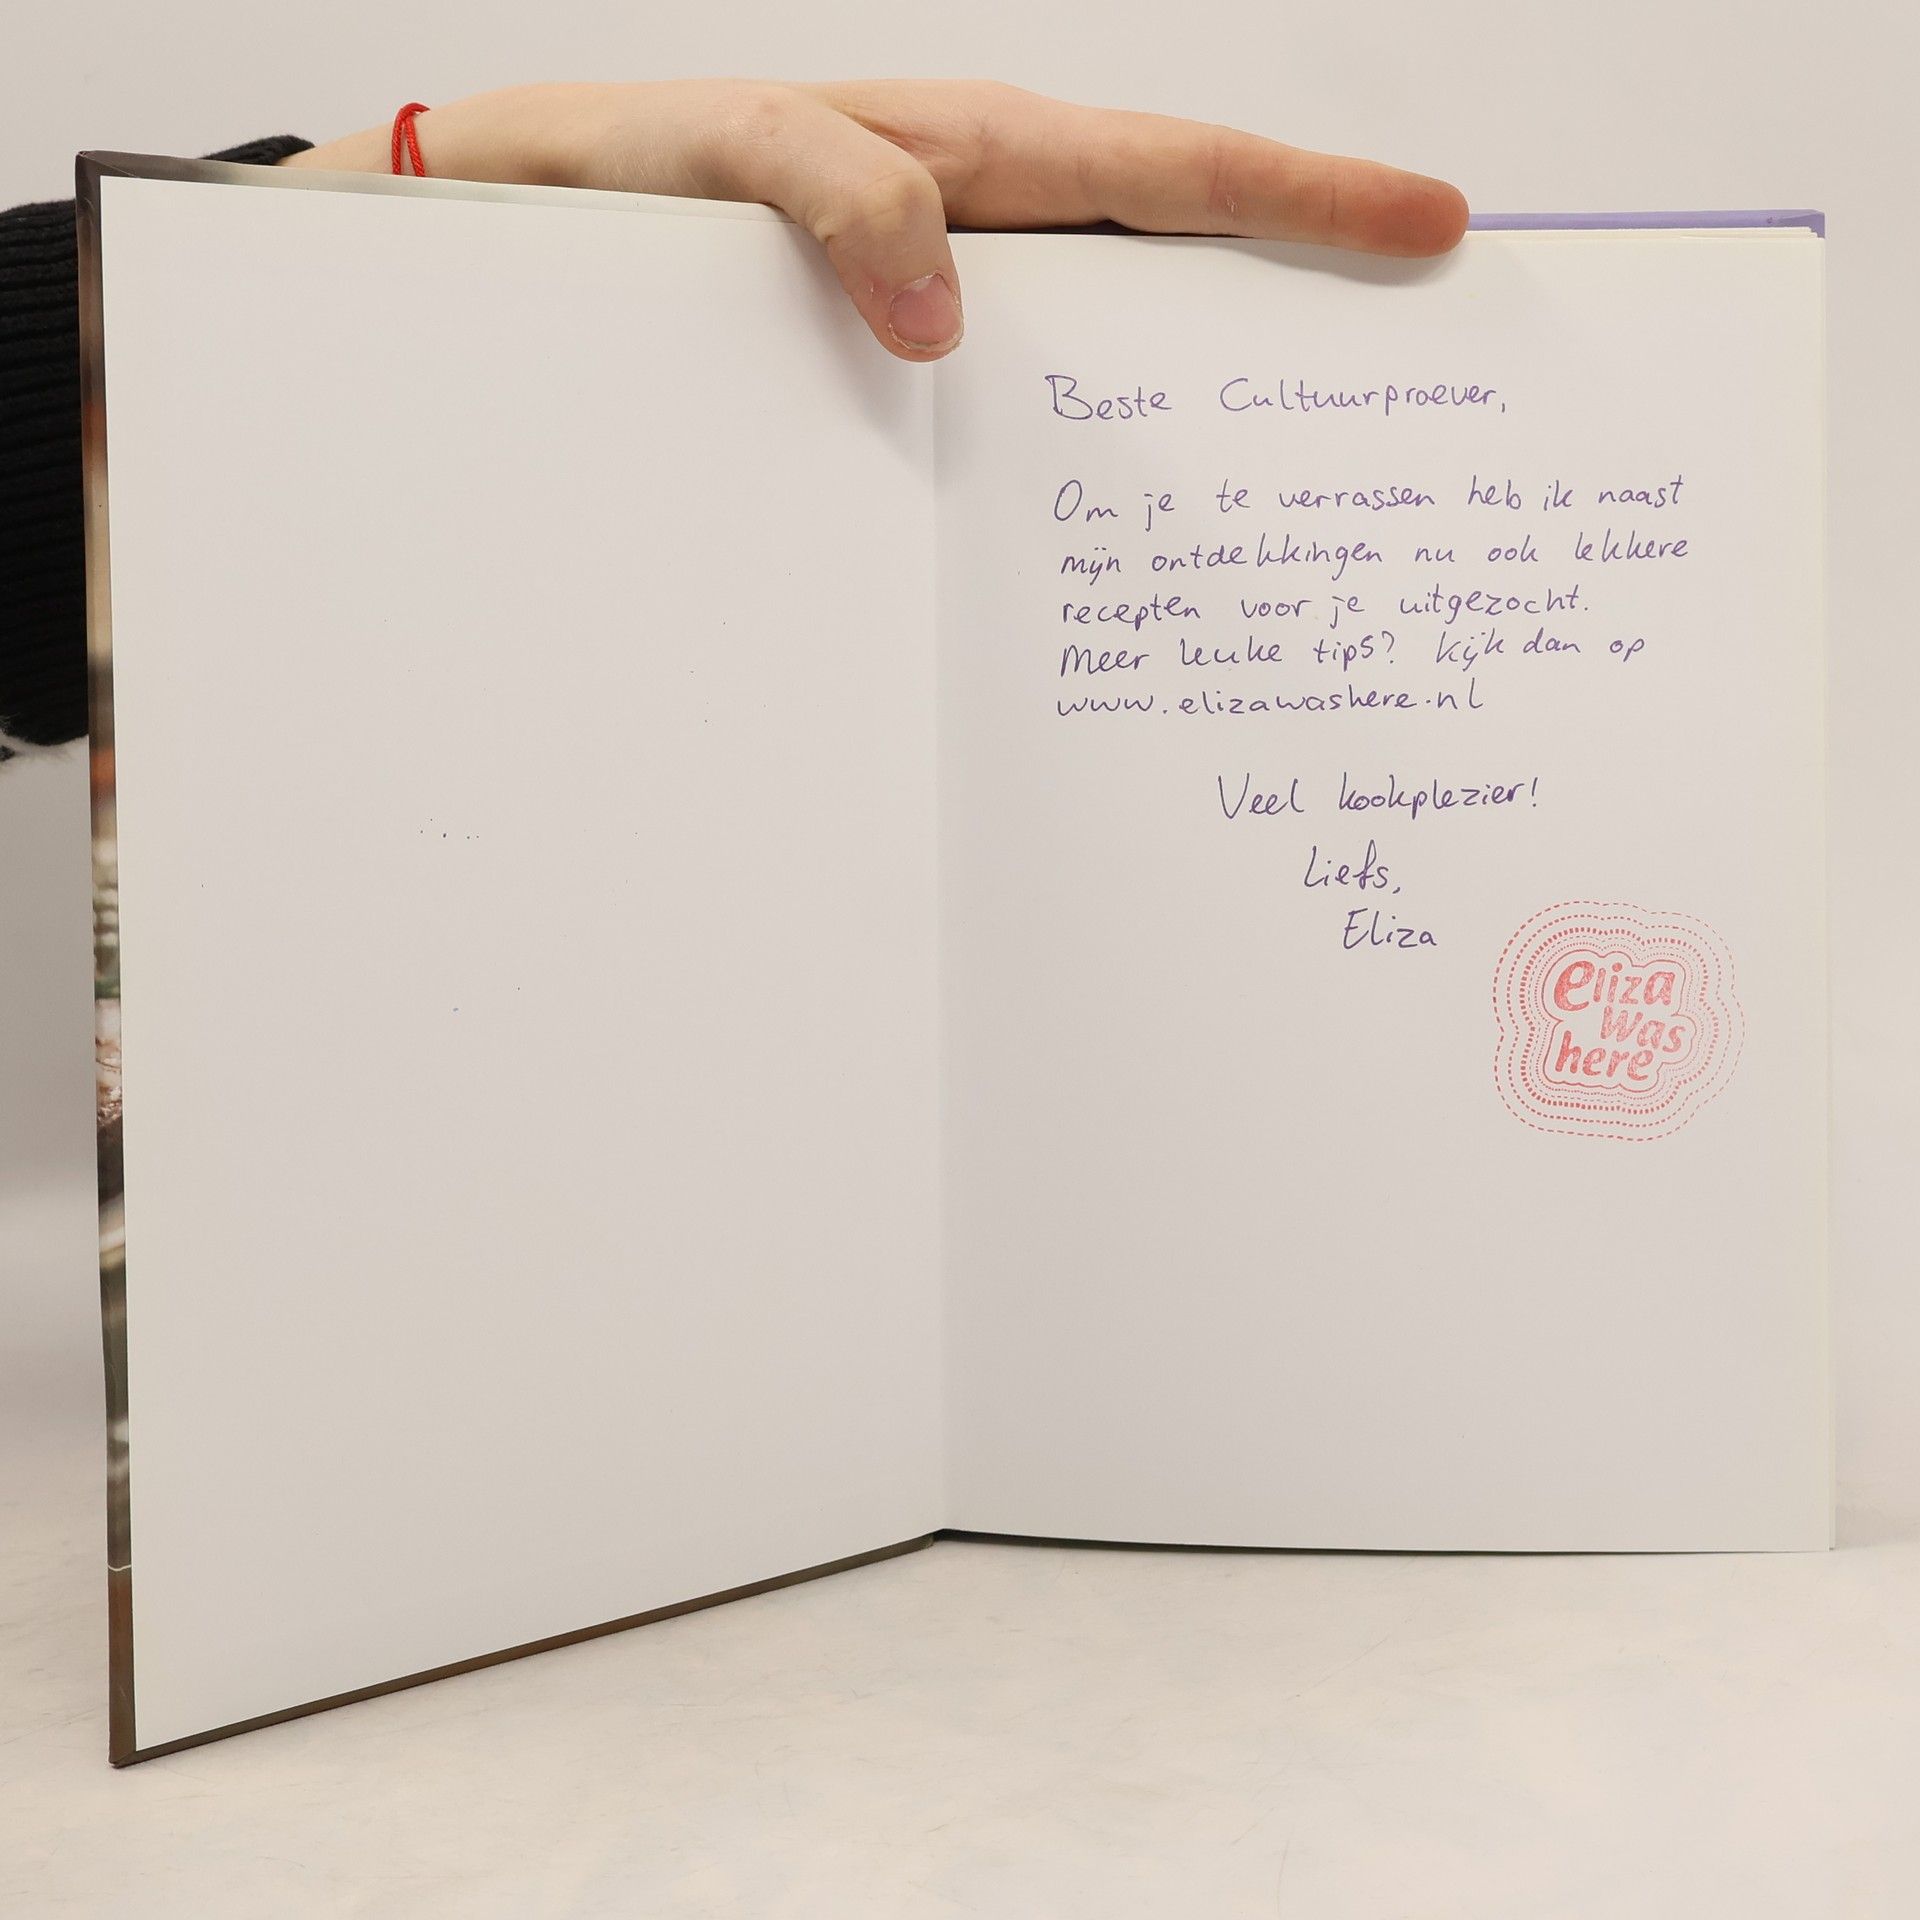 Beste Cultuurproever,
Om je te verrassen heb ik naast
mijn ontdekkingen nu ook lekkere
recepten voor je uitgezocht.
Meer leuke tips? Kijk dan op
www.elizawashere.nl
Veel kookplezier!
Liefs,
Eliza
eliza
was
here